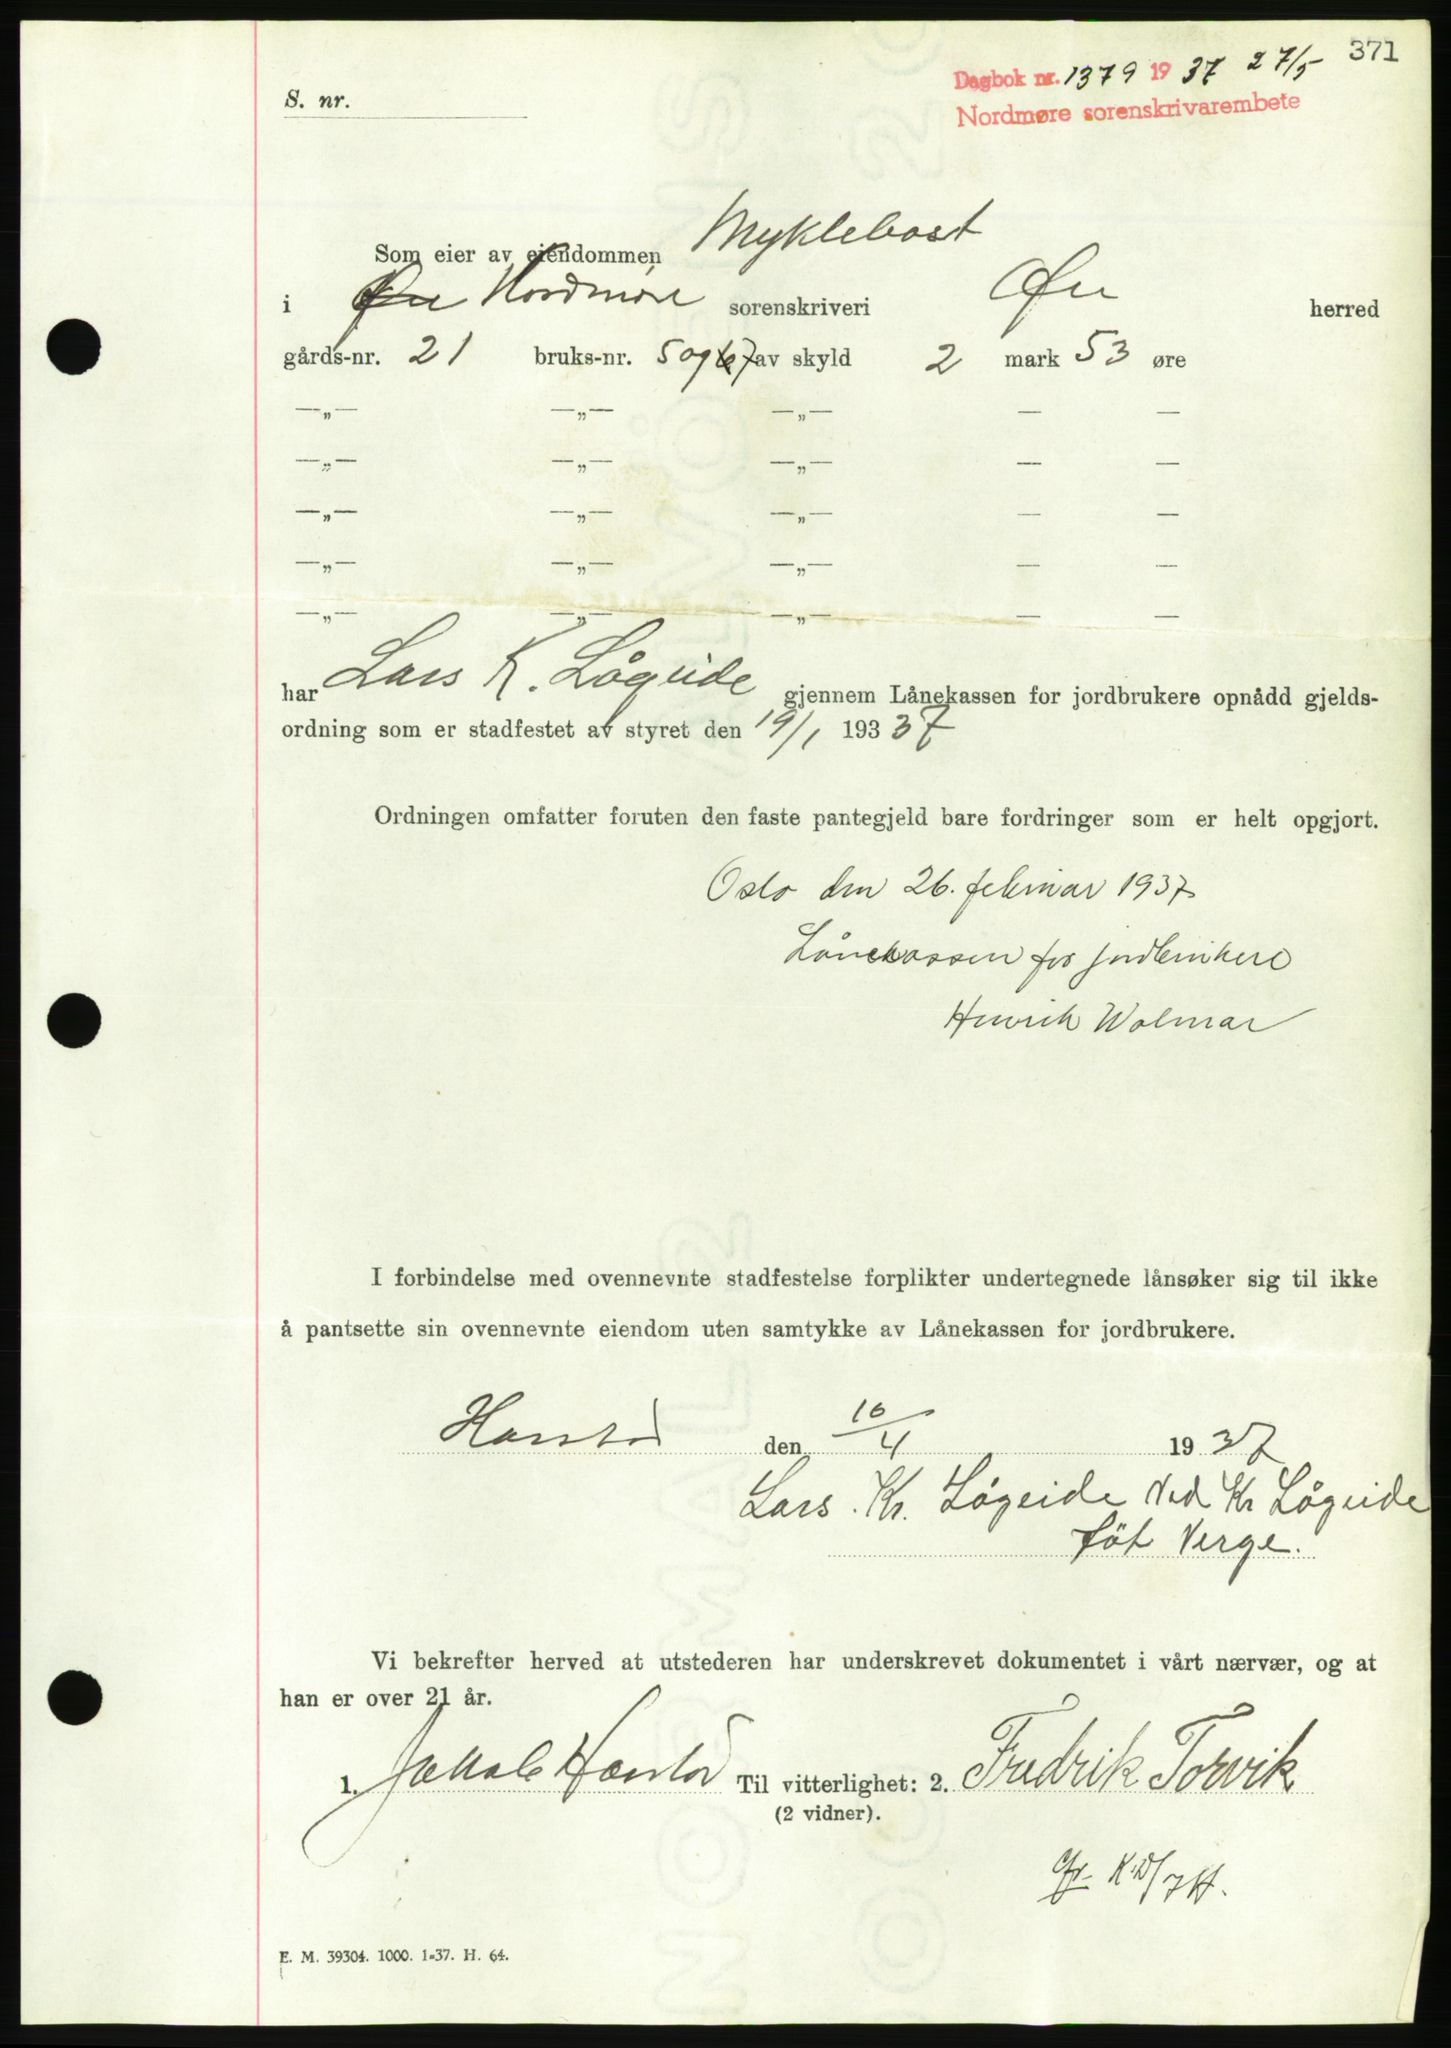 371
Dagbok nr. 1379 19 37 27/5
Nordmøre sorenskrivarembete
S. nr.
Som eier av eiendommen Myklebost
i Øre Nordmøre sorenskriveri Øre herred
gårds-nr. 21 bruks-nr. 5 og 7 av skyld 2 mark 53 øre
—„— —„— —„— — —
—„— —„— —„— — —
—„— —„— —„— — —
—„— —„— —„— — —
—„— —„— —„— — —
har Lars K. Lågeide gjennem Lånekassen for jordbrukere opnådd gjelds-
ordning som er stadfestet av styret den 19/1 193 37
Ordningen omfatter foruten den faste pantegjeld bare fordringer som er helt opgjort.
Oslo den 26. februar 1937
Lånekassen for jordbrukere
Henrik Wolmar
I forbindelse med ovennevnte stadfestelse forplikter undertegnede lånsøker sig til ikke
å pantsette sin ovennevnte eiendom uten samtykke av Lånekassen for jordbrukere.
Harstad den 10/4 19 37
Lars. Kr. Lågeide Ved Kr Lågeide
föt Verge.
Vi bekrefter herved at utstederen har underskrevet dokumentet i vårt nærvær, og at
han er over 21 år.
1. Jakob Til vitterlighet: 2. Fredrik Torvik
(2 vidner).
E. M. 39304. 1000. 1-37. H. 64.